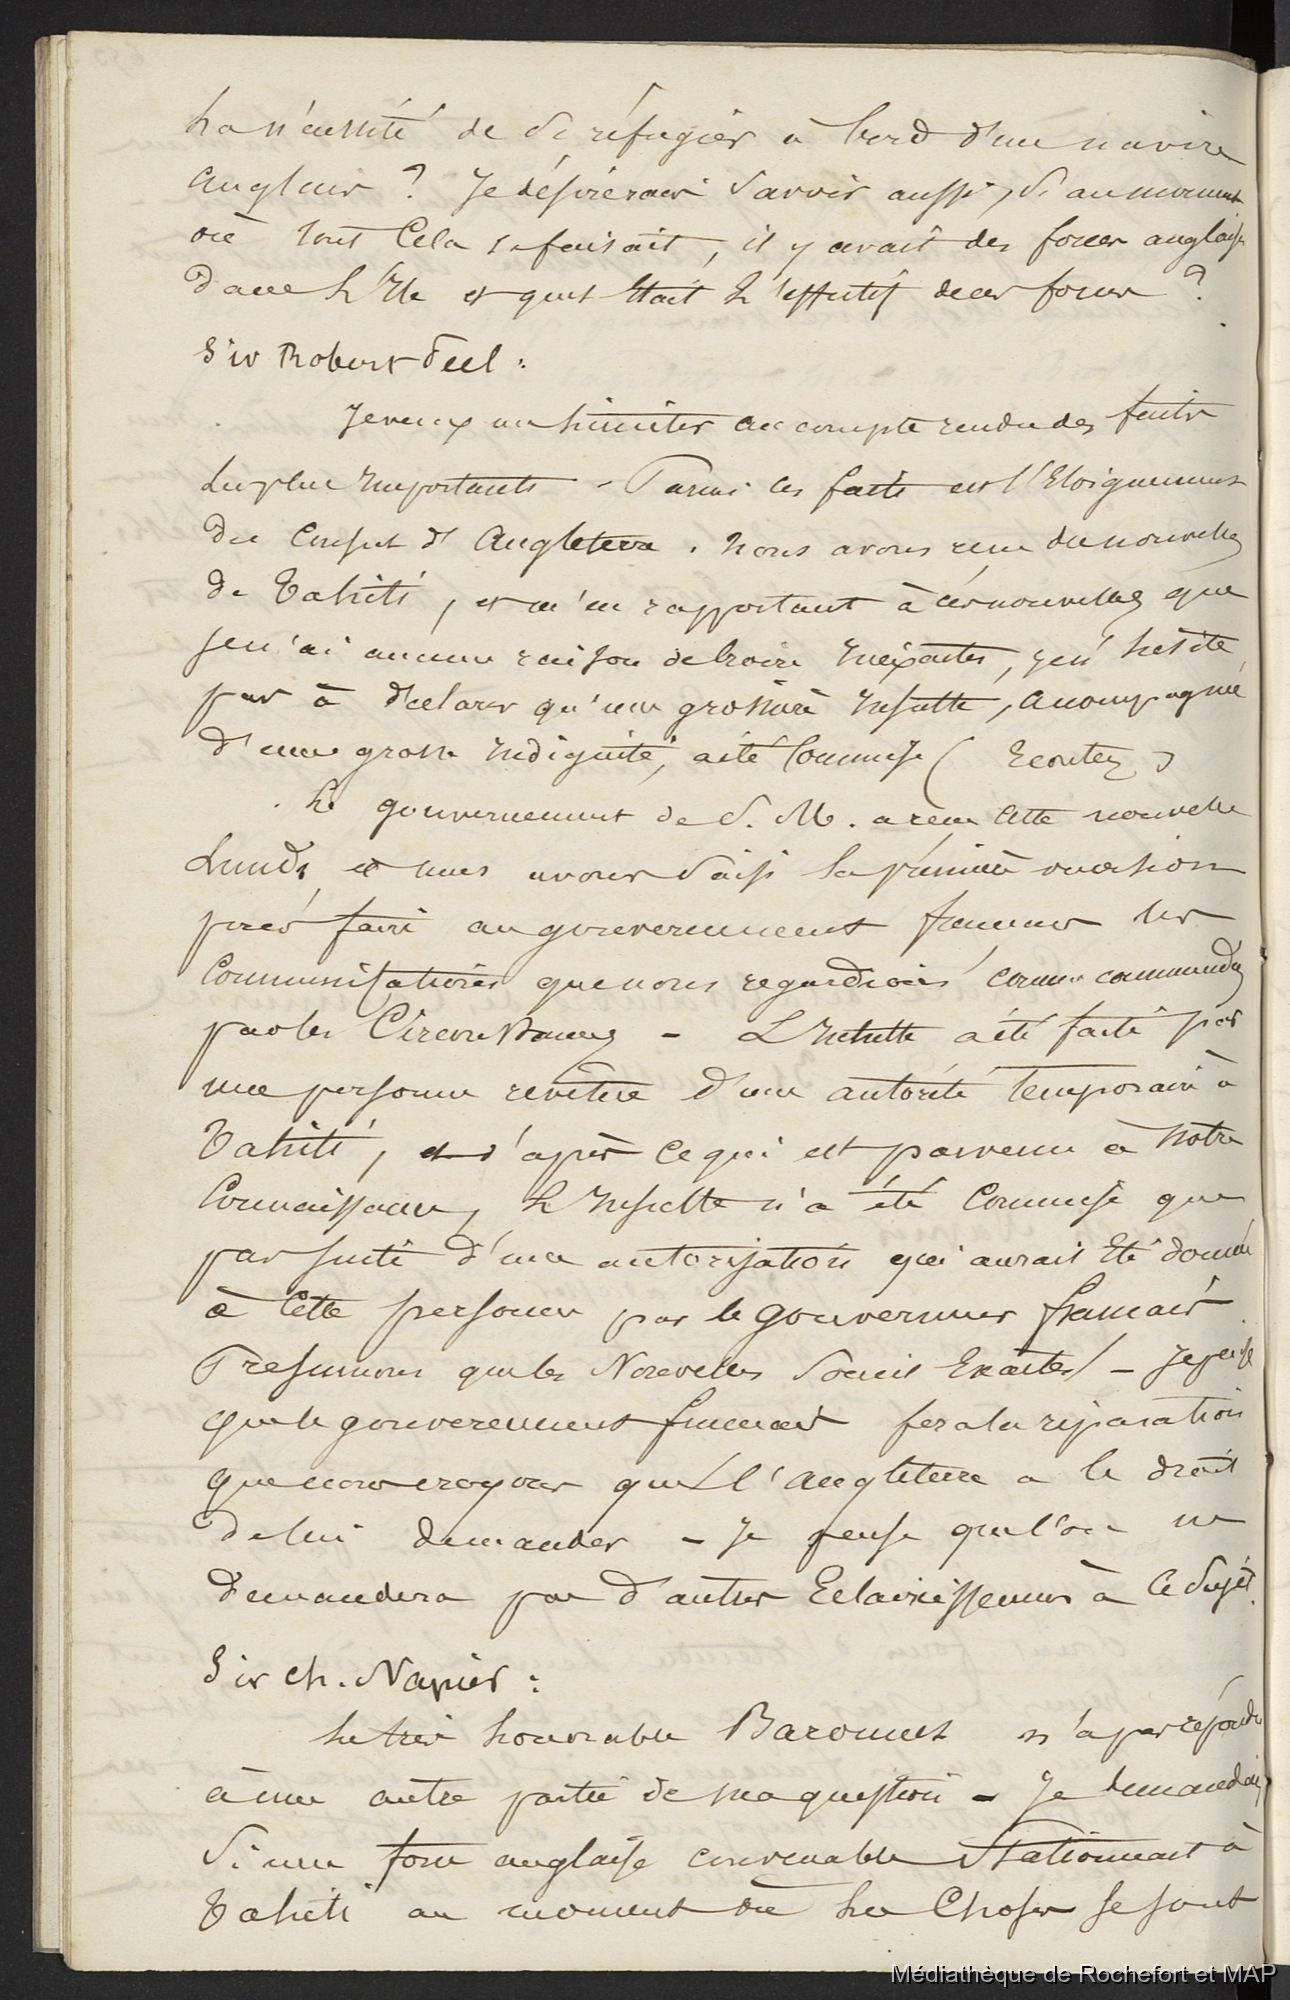 La nécessité de se réfugier à bord d'un navire
Anglais ? Je désirerais savoir aussi, si au moment
où tout cela se faisait, il y avait des forces anglaises
dans l'Ile et quel était l'effectif de ces forces ?
Sir Robert Peel :
Je veux me limiter au compte rendu des faits
les plus importants - Parmi ces faits est l'Eloignement
du Consul d'Angleterre. Nous avons reçu des nouvelles
de Tahiti, et m'en rapportant à ces nouvelles que
je n'ai aucune raison de croire inexactes, je n'hésite
pas à déclarer qu'une grossière insulte, accompagnée
d'une grosse indignité, a été commise (Ecoutez)
Le gouvernement de S. M. a reçu cette nouvelle
Lundi et nous avons saisi la première occasion
pour faire au gouvernement français les
communications que nous regardions comme commandées
par les Circonstances - L'insulte a été faite par
une personne revêtue d'une autorité temporaire à
Tahiti, et d'après ce qui est parvenu à notre
Connaissance, l'insulte n'a été commise que
par suite d'une autorisation qui aurait été donnée
à cette personne par le gouvernement français.
Presumons que les Nouvelles soient Exactes - Je pense
que le gouvernement français fera la réparation
que nous croyons que l'Angleterre a le droit
de lui demander - Je pense que l'on ne
demandera pas d'autres Eclaircissemens à ce sujet.
Sir Ch. Napier :
Le très honorable Baronnet n'a pas répondu
à une autre partie de ma question - Je demandais
si une force anglaise convenable stationnait à
Tahiti au moment où les Choses se sont
Médiathèque de Rochefort et MAP